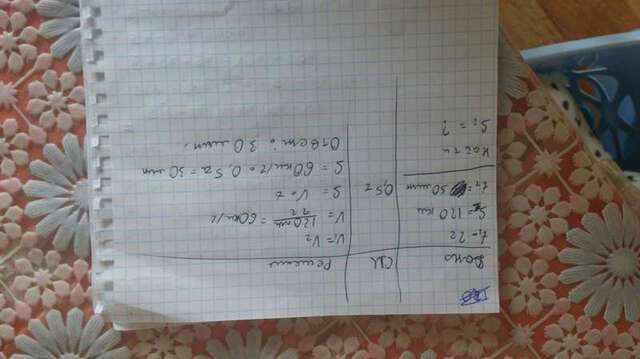 Дано
t₁ = 2 г
S₁ = 120 км
t₂ = 30 мин
Найти
S₂ = ?
СИ
0,5 г
Решение
V₁ = V₂
V = 120 км / 2 г = 60 км/г
S = V · t
S = 60 км/г · 0,5 г = 30 км
Ответ: 30 мин.